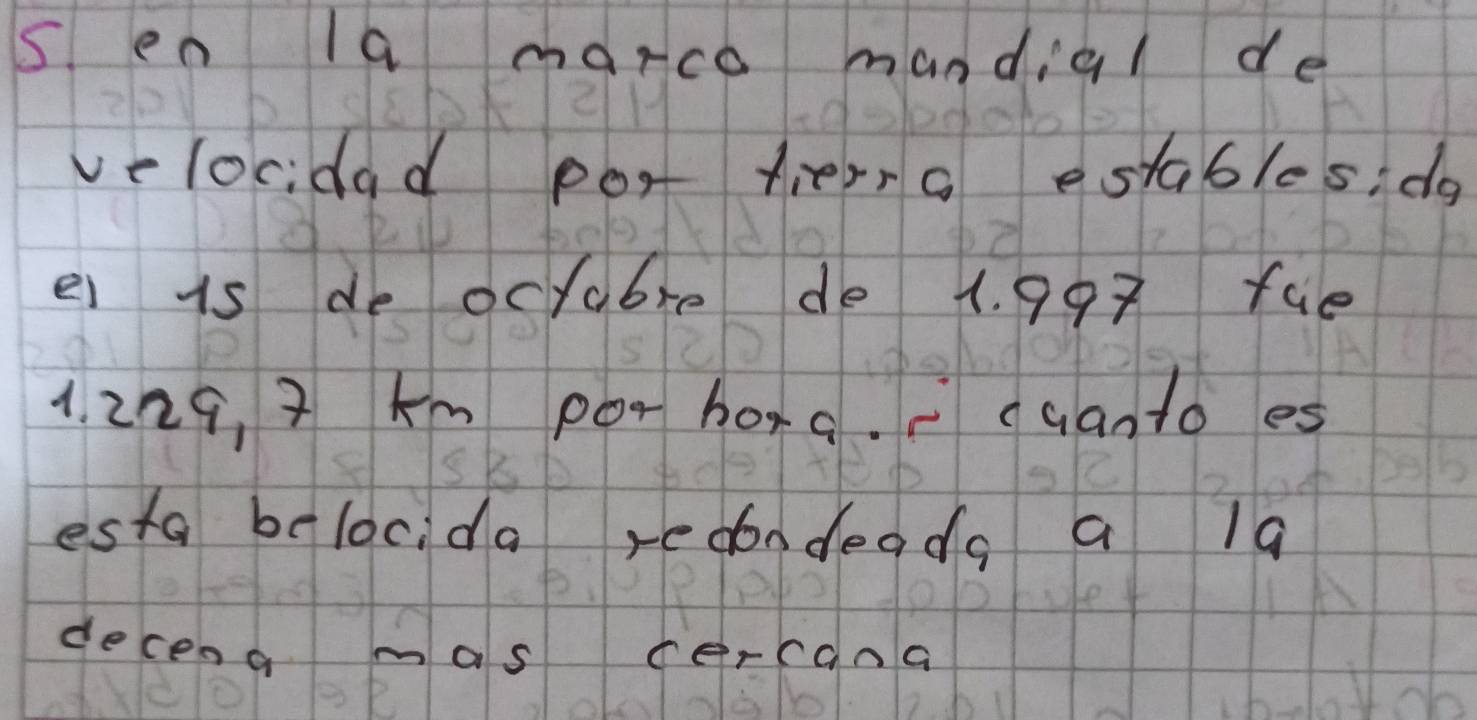 5. en la marca mundial de
velocidad por tierra establesida
el 15 de octubre de 1.997 fue
1.229,7 km por hora. ¿ cuanto es
esta belocida redondeada a la
decena mas cercana